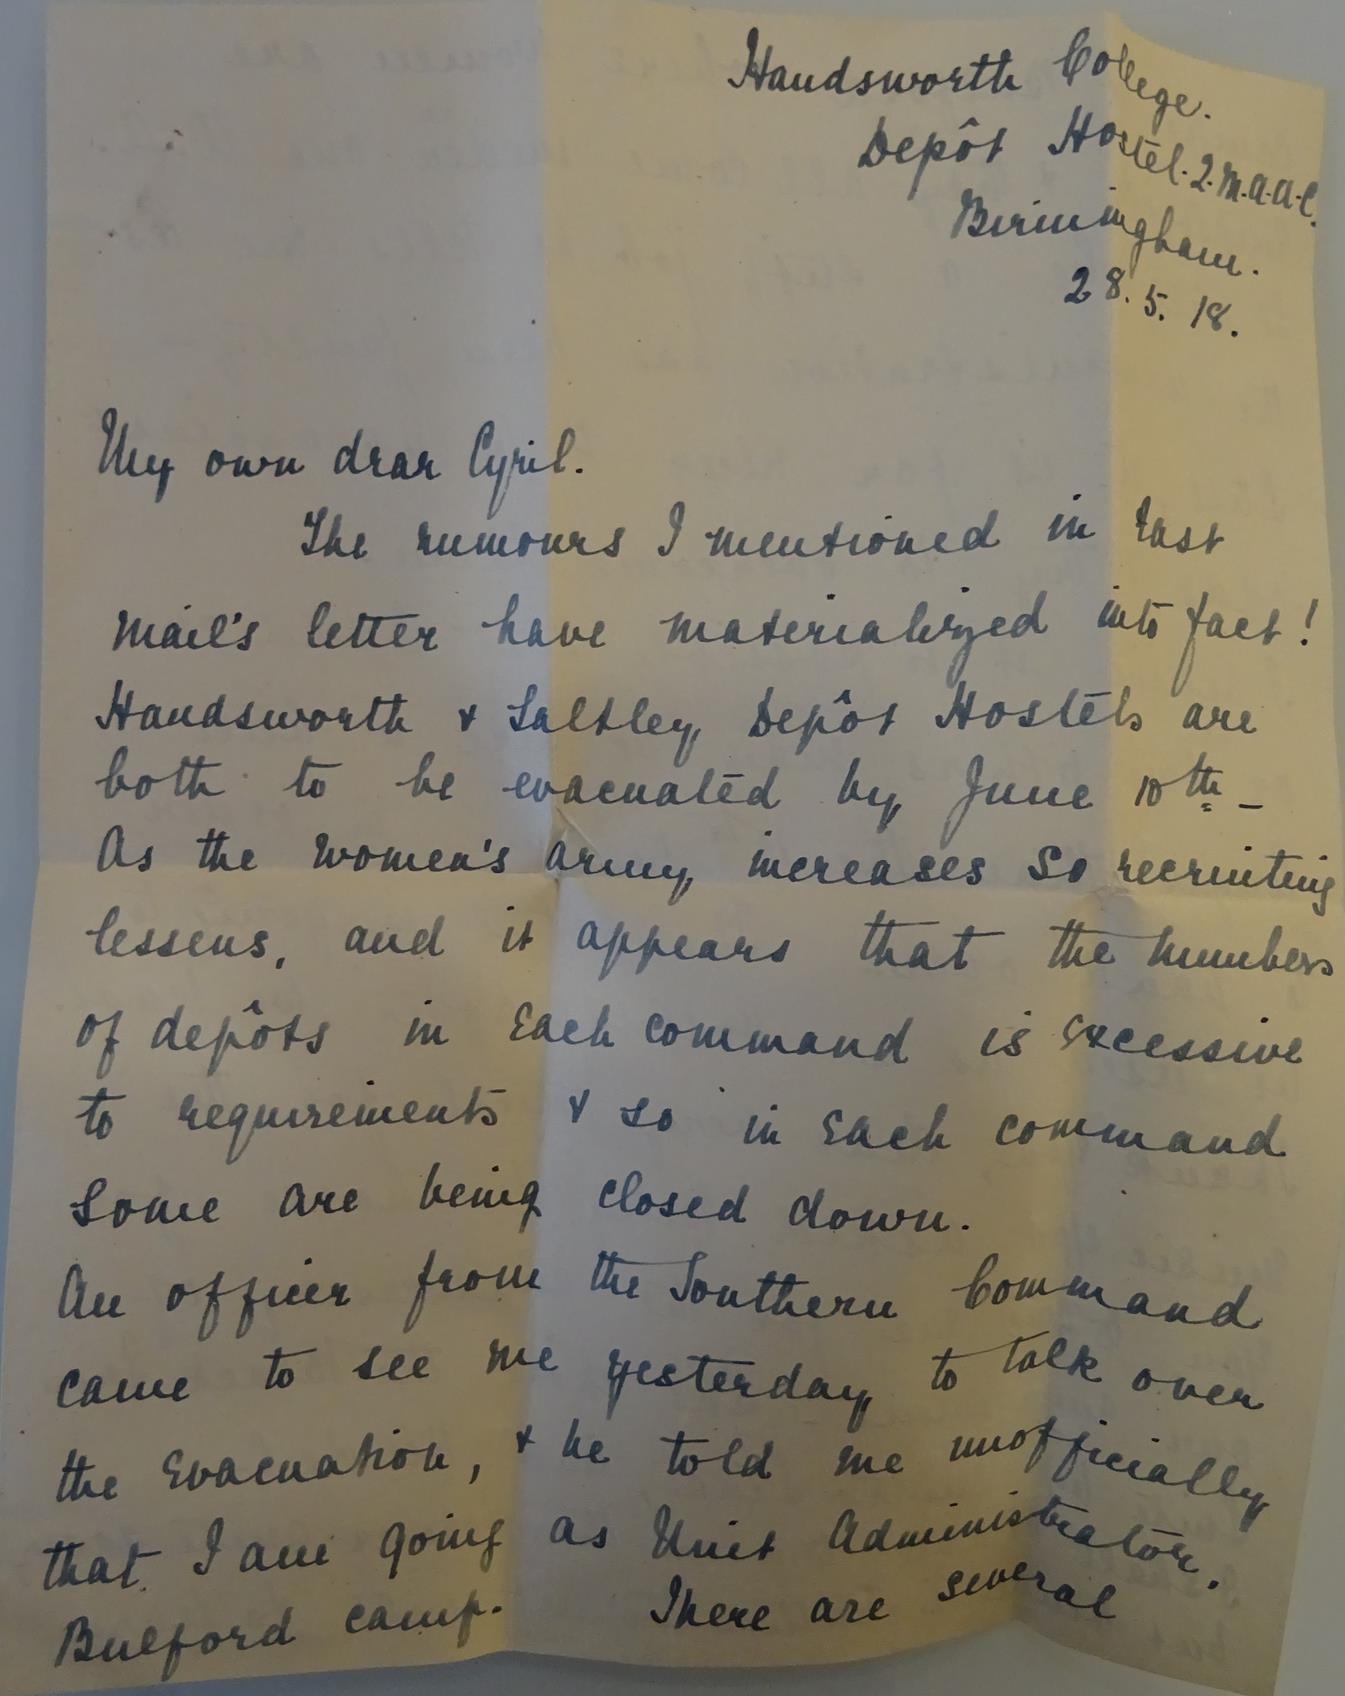 Handsworth College.
Depôt Hostel. Q.M.A.A.C.
Birmingham.
28. 5. 18.
My own dear Cyril.
The rumours I mentioned in last
mail's letter have materialized into fact!
Handsworth & Saltley Depôt Hostels are
both to be evacuated by June 10th -
As the Women's army increases so recruiting
lessens, and it appears that the numbers
of depôts in each command is excessive
to requirements & so in each command
some are being closed down.
An officer from the Southern Command
came to see me yesterday to talk over
the evacuation, & he told me unofficially
that I am going as Unit Administrator.
Bulford camp. There are several